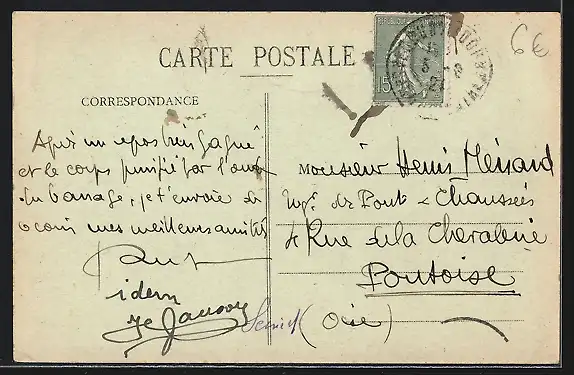 6€
RÉPUBLIQUE FRANÇAISE
15
CARTE POSTALE
CORRESPONDANCE
Après un repos bien gagné
et le corps purifié par l'
du barrage, je t'envoie de
ce coin mes meilleures amitiés
idem
Monsieur Henis Ménard
Ing. des Ponts & Chaussées
4 Rue de la Chevalerie
Pontoise
(Oise)